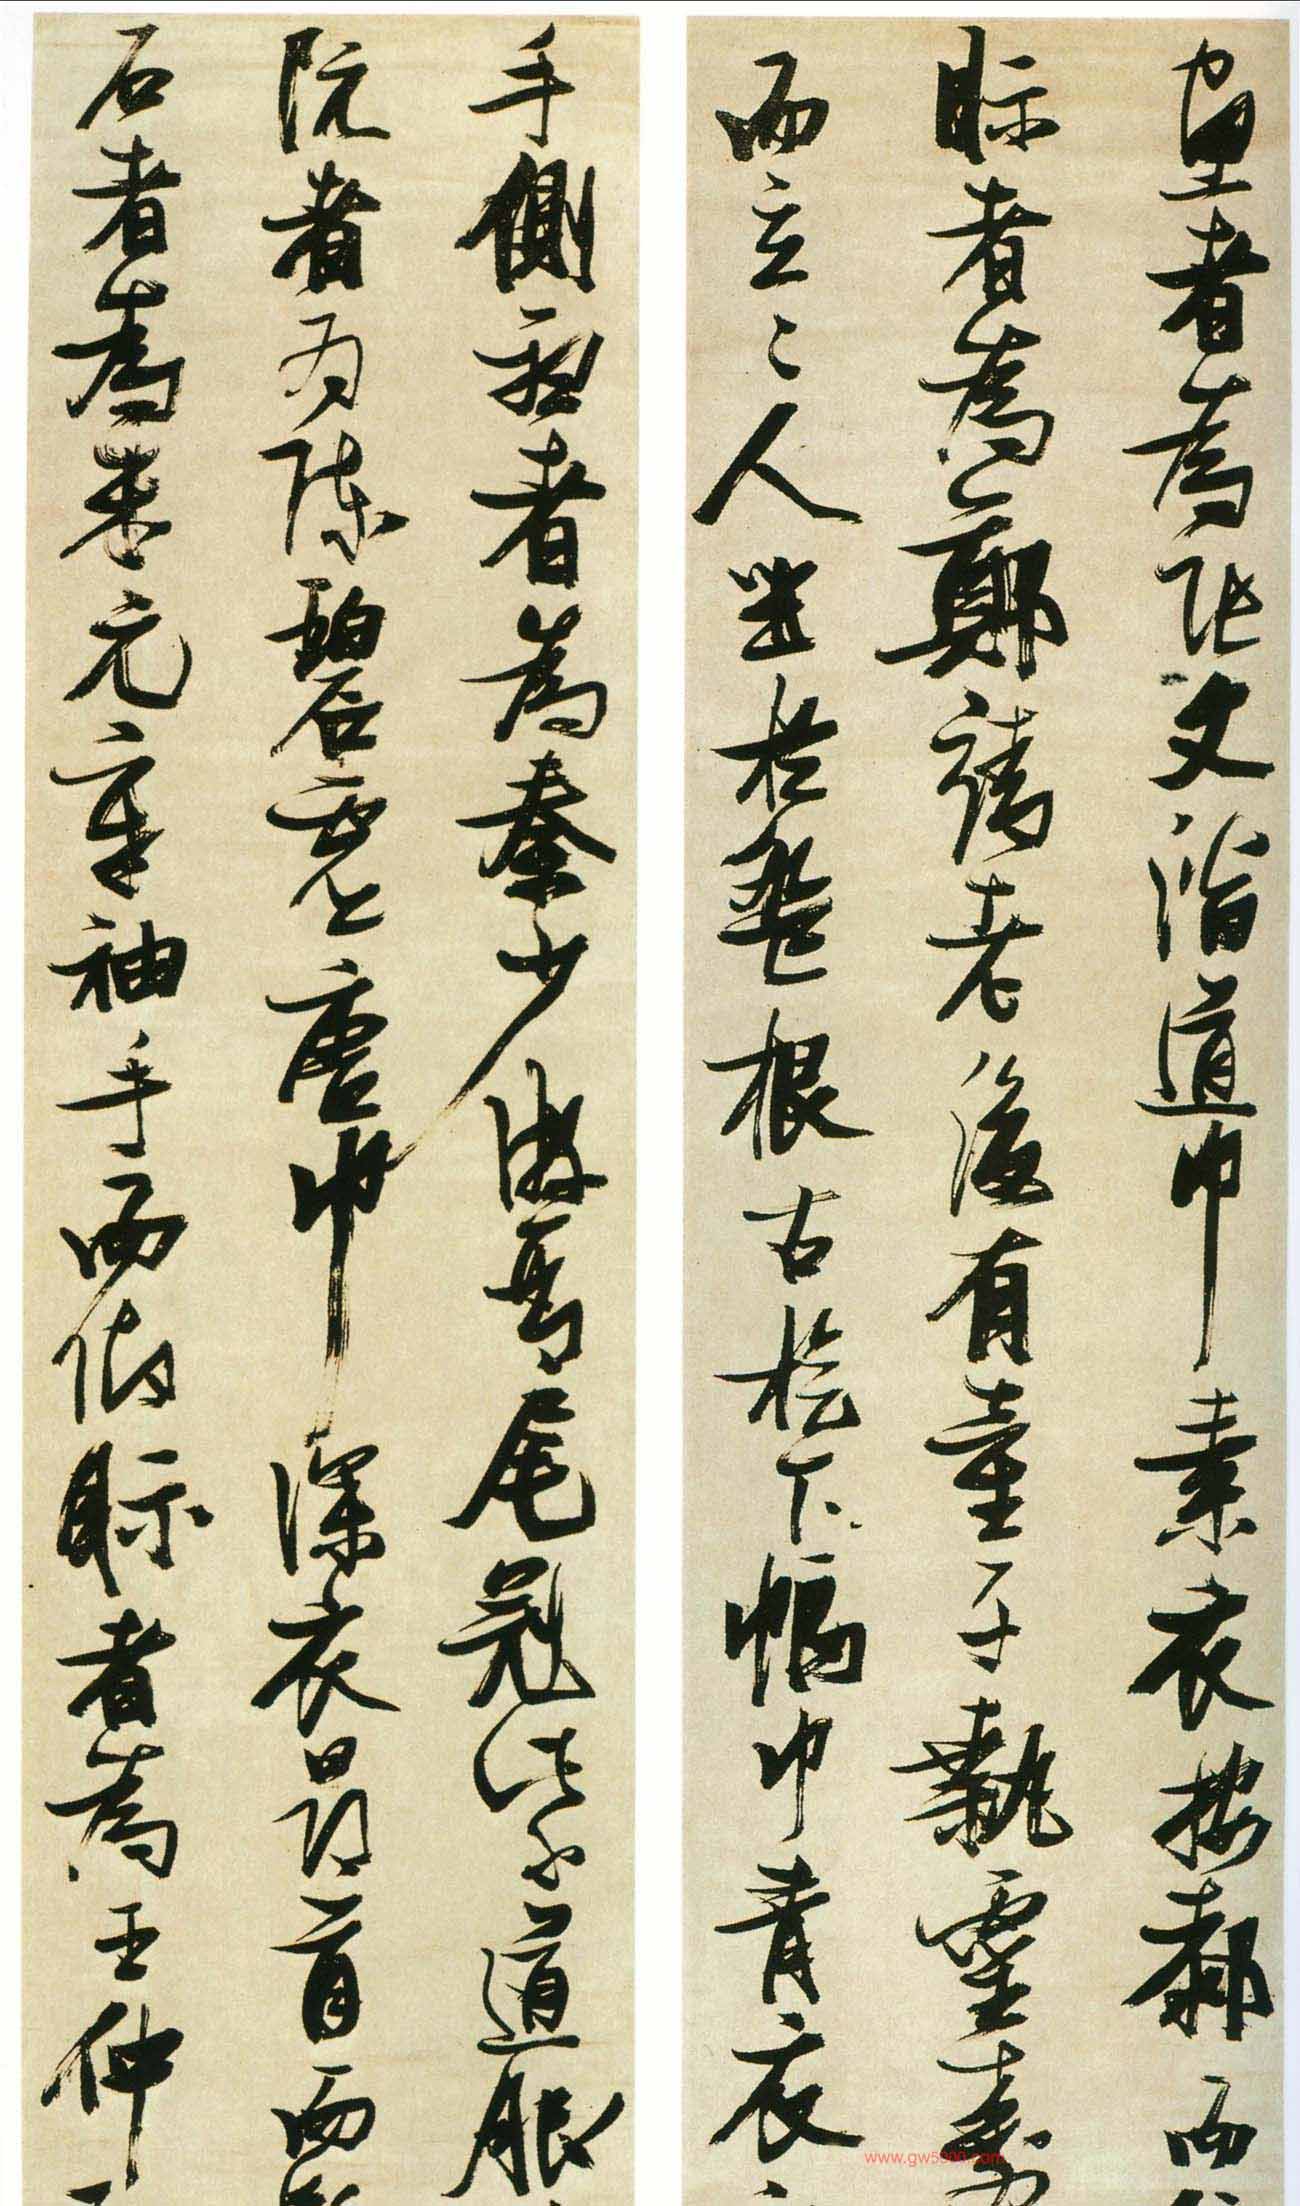 望者為張文潛道巾素衣按厀而
眎者為鄭靖老後有童子執靈壽
而立二人坐於盤根古檜下幅巾青衣
手側聽者為秦少游琴尾冠紫道服
阮者為陳碧虛唐巾深衣昂首而
石者為米元章袖手而仰眎者為王仲
www.gw5000.com